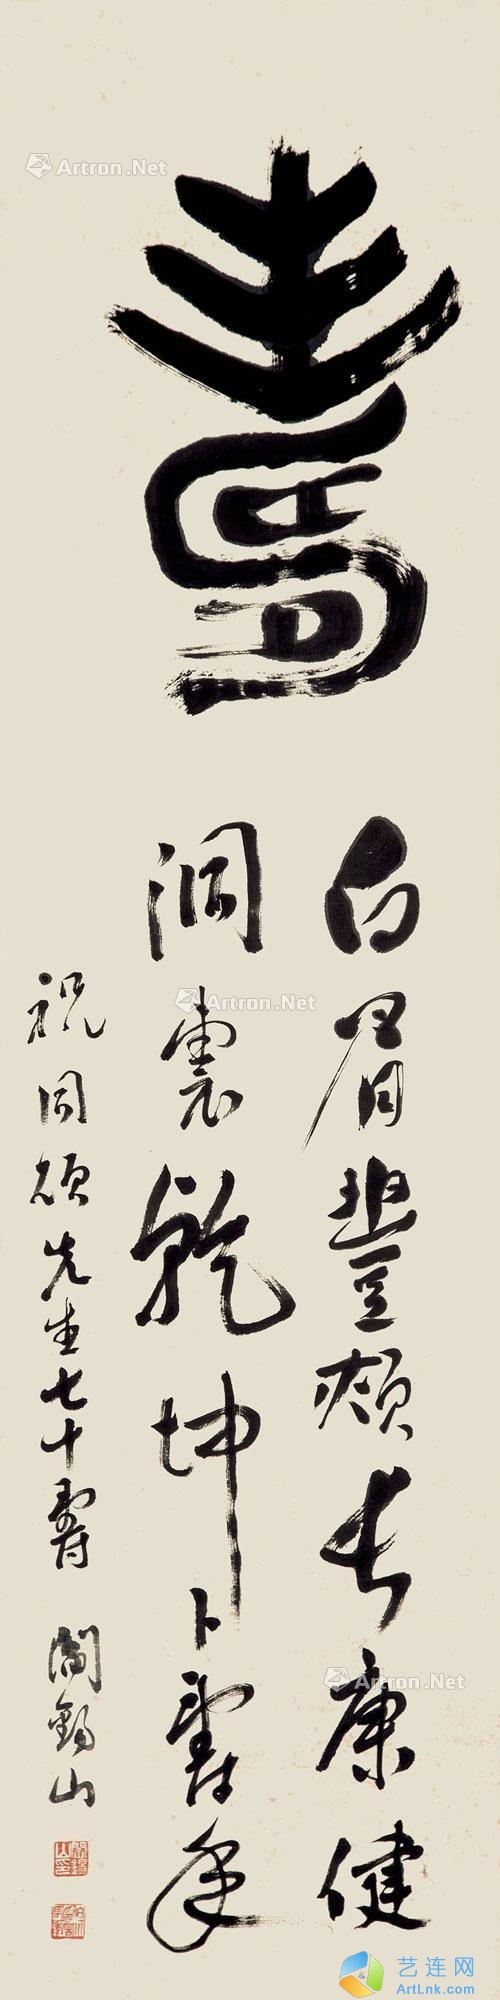 壽
白眉豐頰長康健
洞裏乾坤卜壽年
祝同先生七十壽
閻錫山
閻錫山印
Artron.Net
Artron.Net
Artron.Net
艺连网
ArtLnk.com